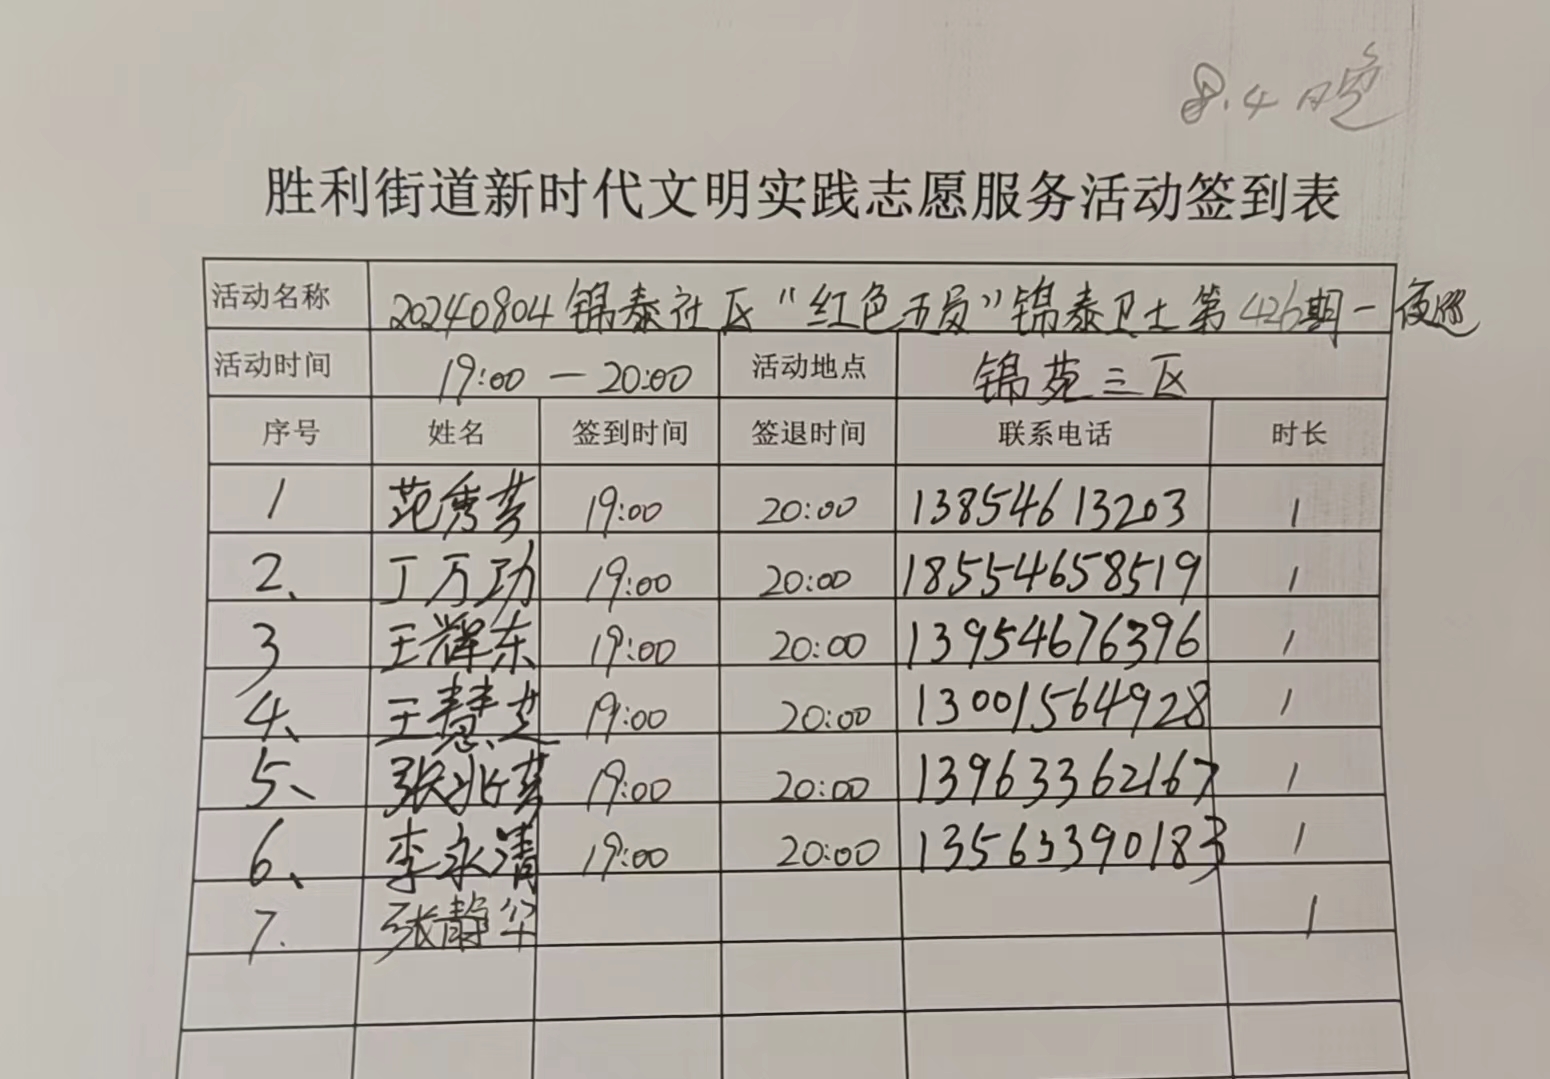 8.4晚
胜利街道新时代文明实践志愿服务活动签到表
活动名称 20240804锦泰社区“红色五员”锦泰卫士第426期一夜巡
活动时间 19:00 — 20:00 活动地点 锦苑三区
序号 姓名 签到时间 签退时间 联系电话 时长
1 范秀芬 19:00 20:00 13854613203 1
2、 丁万功 19:00 20:00 18554658519 1
3 王辉东 19:00 20:00 13954676396 1
4、 王慧芝 19:00 20:00 13001564928 1
5、 张兆芬 19:00 20:00 13963362167 1
6、 李永清 19:00 20:00 13563390183 1
7. 张静华 1